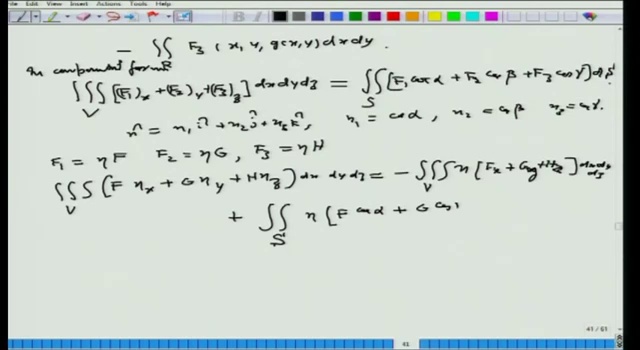 File Edit View Insert Actions Tools Help
− ∬_R F₃ (x, y, g(x,y)) dx dy .
In component form
∭_V [(F₁)_x + (F₂)_y + (F₃)_z] dx dy dz = ∬_S [F₁ cos α + F₂ cos β + F₃ cos γ] dS
n̂ = n₁ î + n₂ ĵ + n₃ k̂, n₁ = cos α, n₂ = cos β n₃ = cos γ.
F₁ = η F F₂ = η G, F₃ = η H
∭_V (F η_x + G η_y + H η_z) dx dy dz = − ∭_V η [F_x + G_y + H_z] dx dy dz
+ ∬_S η [F cos α + G cos
41 / 61
41